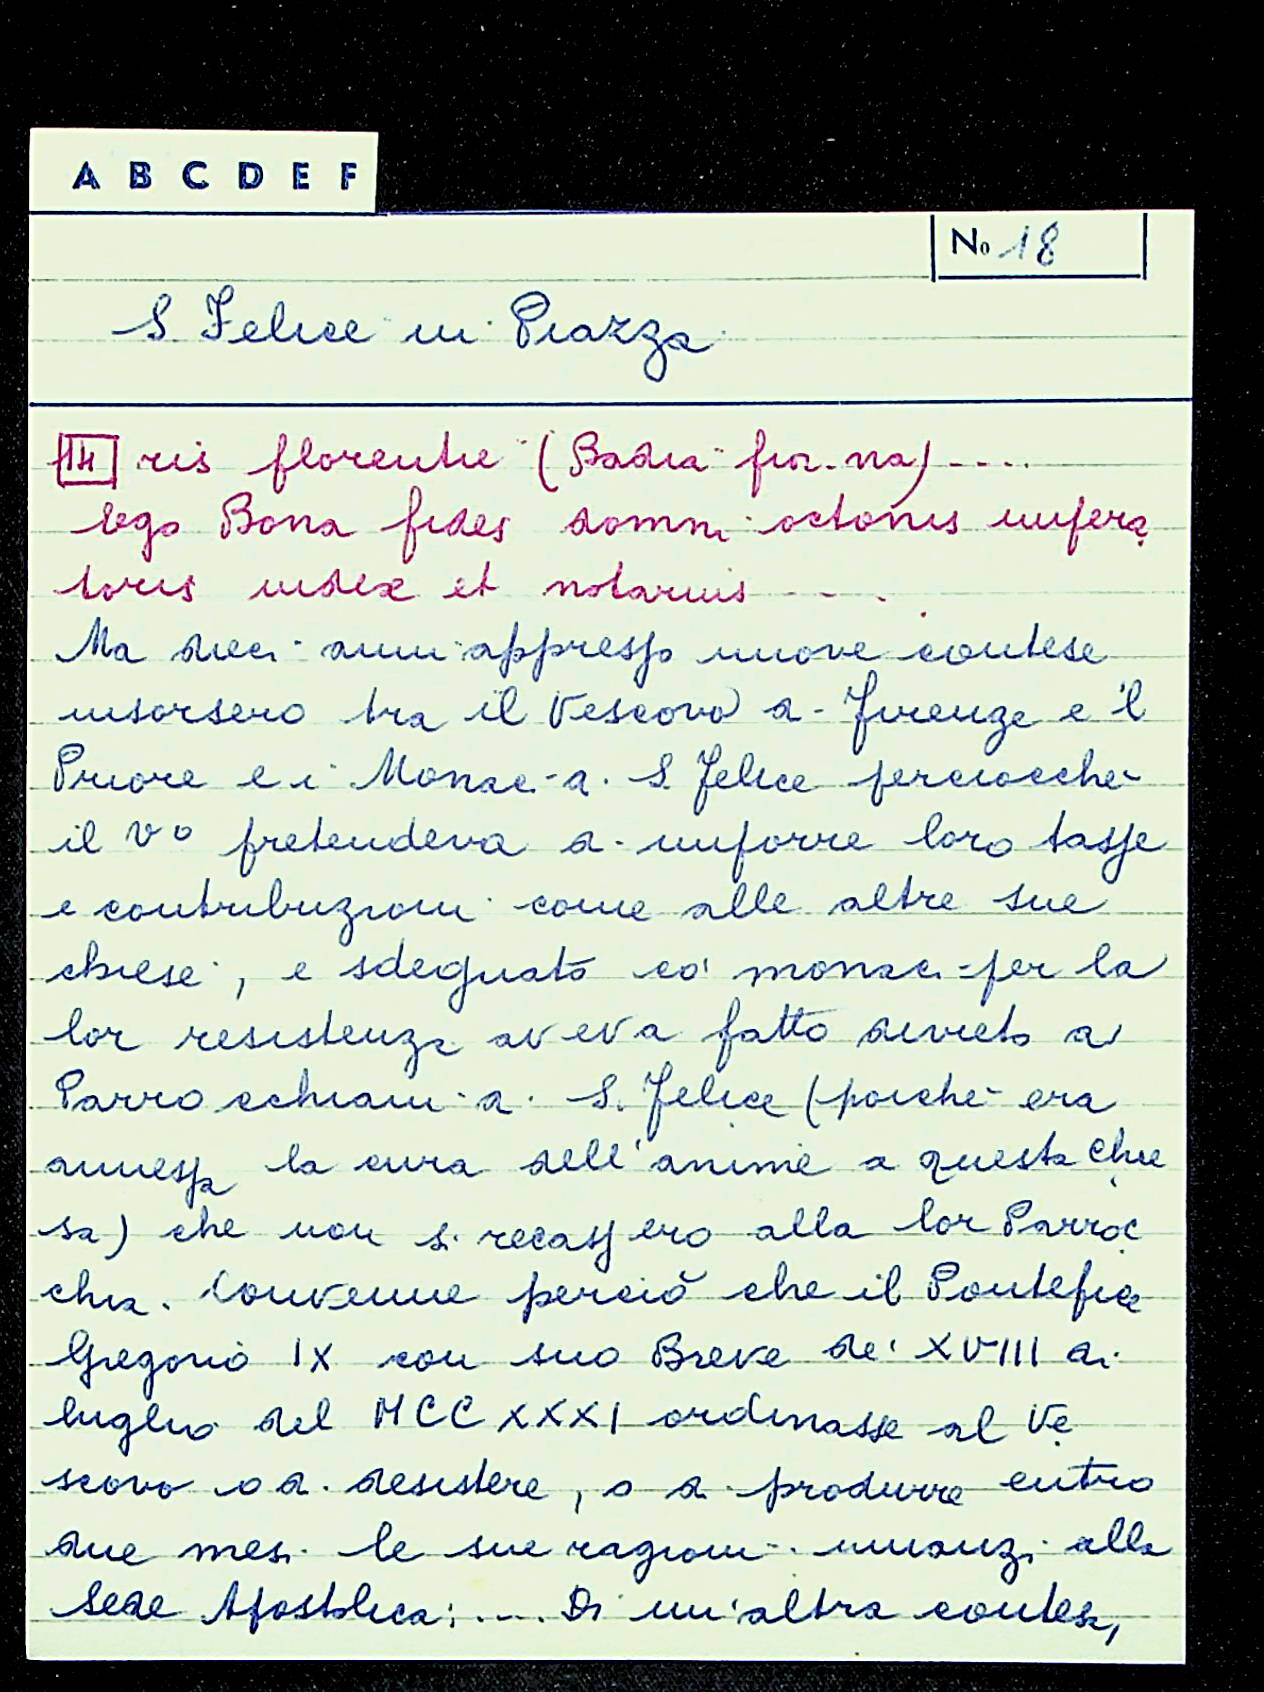 A B C D E F
No 18
S. Felice in Piazza
14 ris florentie (Badia fior.na) ....
Ego Bona fides domni octonis impera
toris iudex et notarius ....
Ma dieci anni appresso nuove contese
insorsero tra il Vescovo di Firenze e 'l
Priore e i Monaci di S. Felice perciocché
il Vo pretendeva di imporre loro tasse
e contribuzioni come alle altre sue
chiese, e sdegnato co' monaci per la
lor resistenza aveva fatto divieto a'
Parrocchiani di S. Felice (poiché era
annessa la cura dell'anime a questa chie
sa) che non si recassero alla lor Parroc
chia. Convenne perciò che il Pontefice
Gregorio IX con suo Breve de' XVIII di
luglio del MCCXXXI ordinasse al Ve
scovo o di desistere, o di produrre entro
due mesi le sue ragioni innanzi alla
Sede Apostolica; .... Di un'altra contesa,